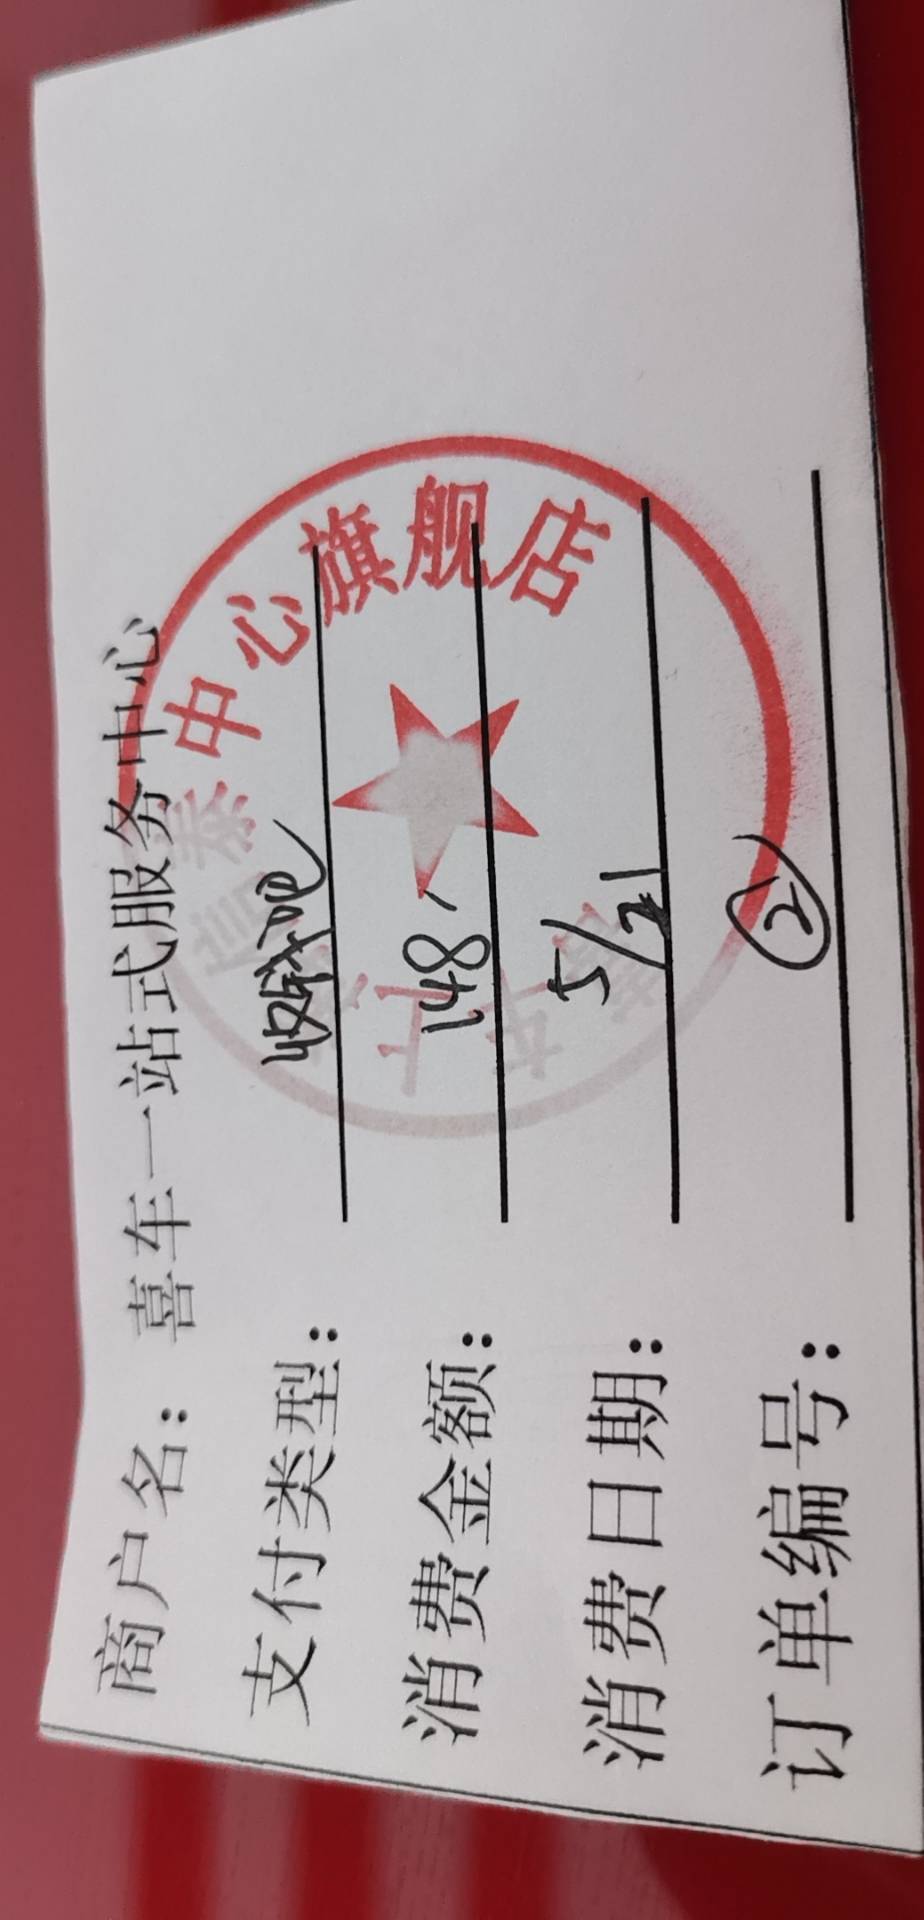 商户名：喜车一站式服务中心
支付类型：
消费金额：148
消费日期：5/21
订单编号：②
泰中心旗舰店